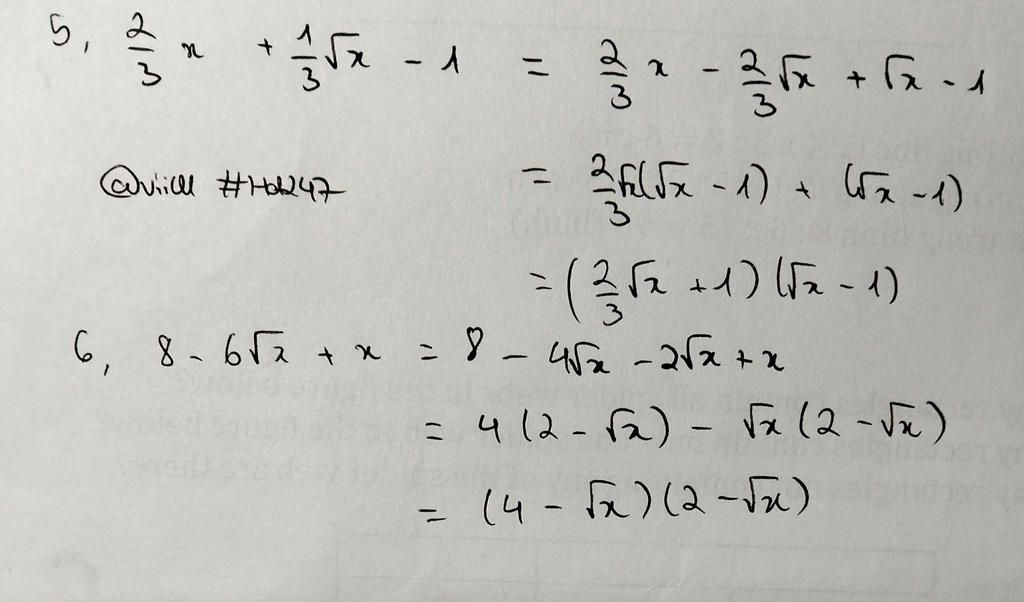 5, 2/3 x + 1/3 √x - 1 = 2/3 x - 2/3 √x + √x - 1
= 2/3 √x(√x - 1) + (√x - 1)
= (2/3 √x + 1)(√x - 1)
6, 8 - 6√x + x = 8 - 4√x - 2√x + x
= 4(2 - √x) - √x(2 - √x)
= (4 - √x)(2 - √x)